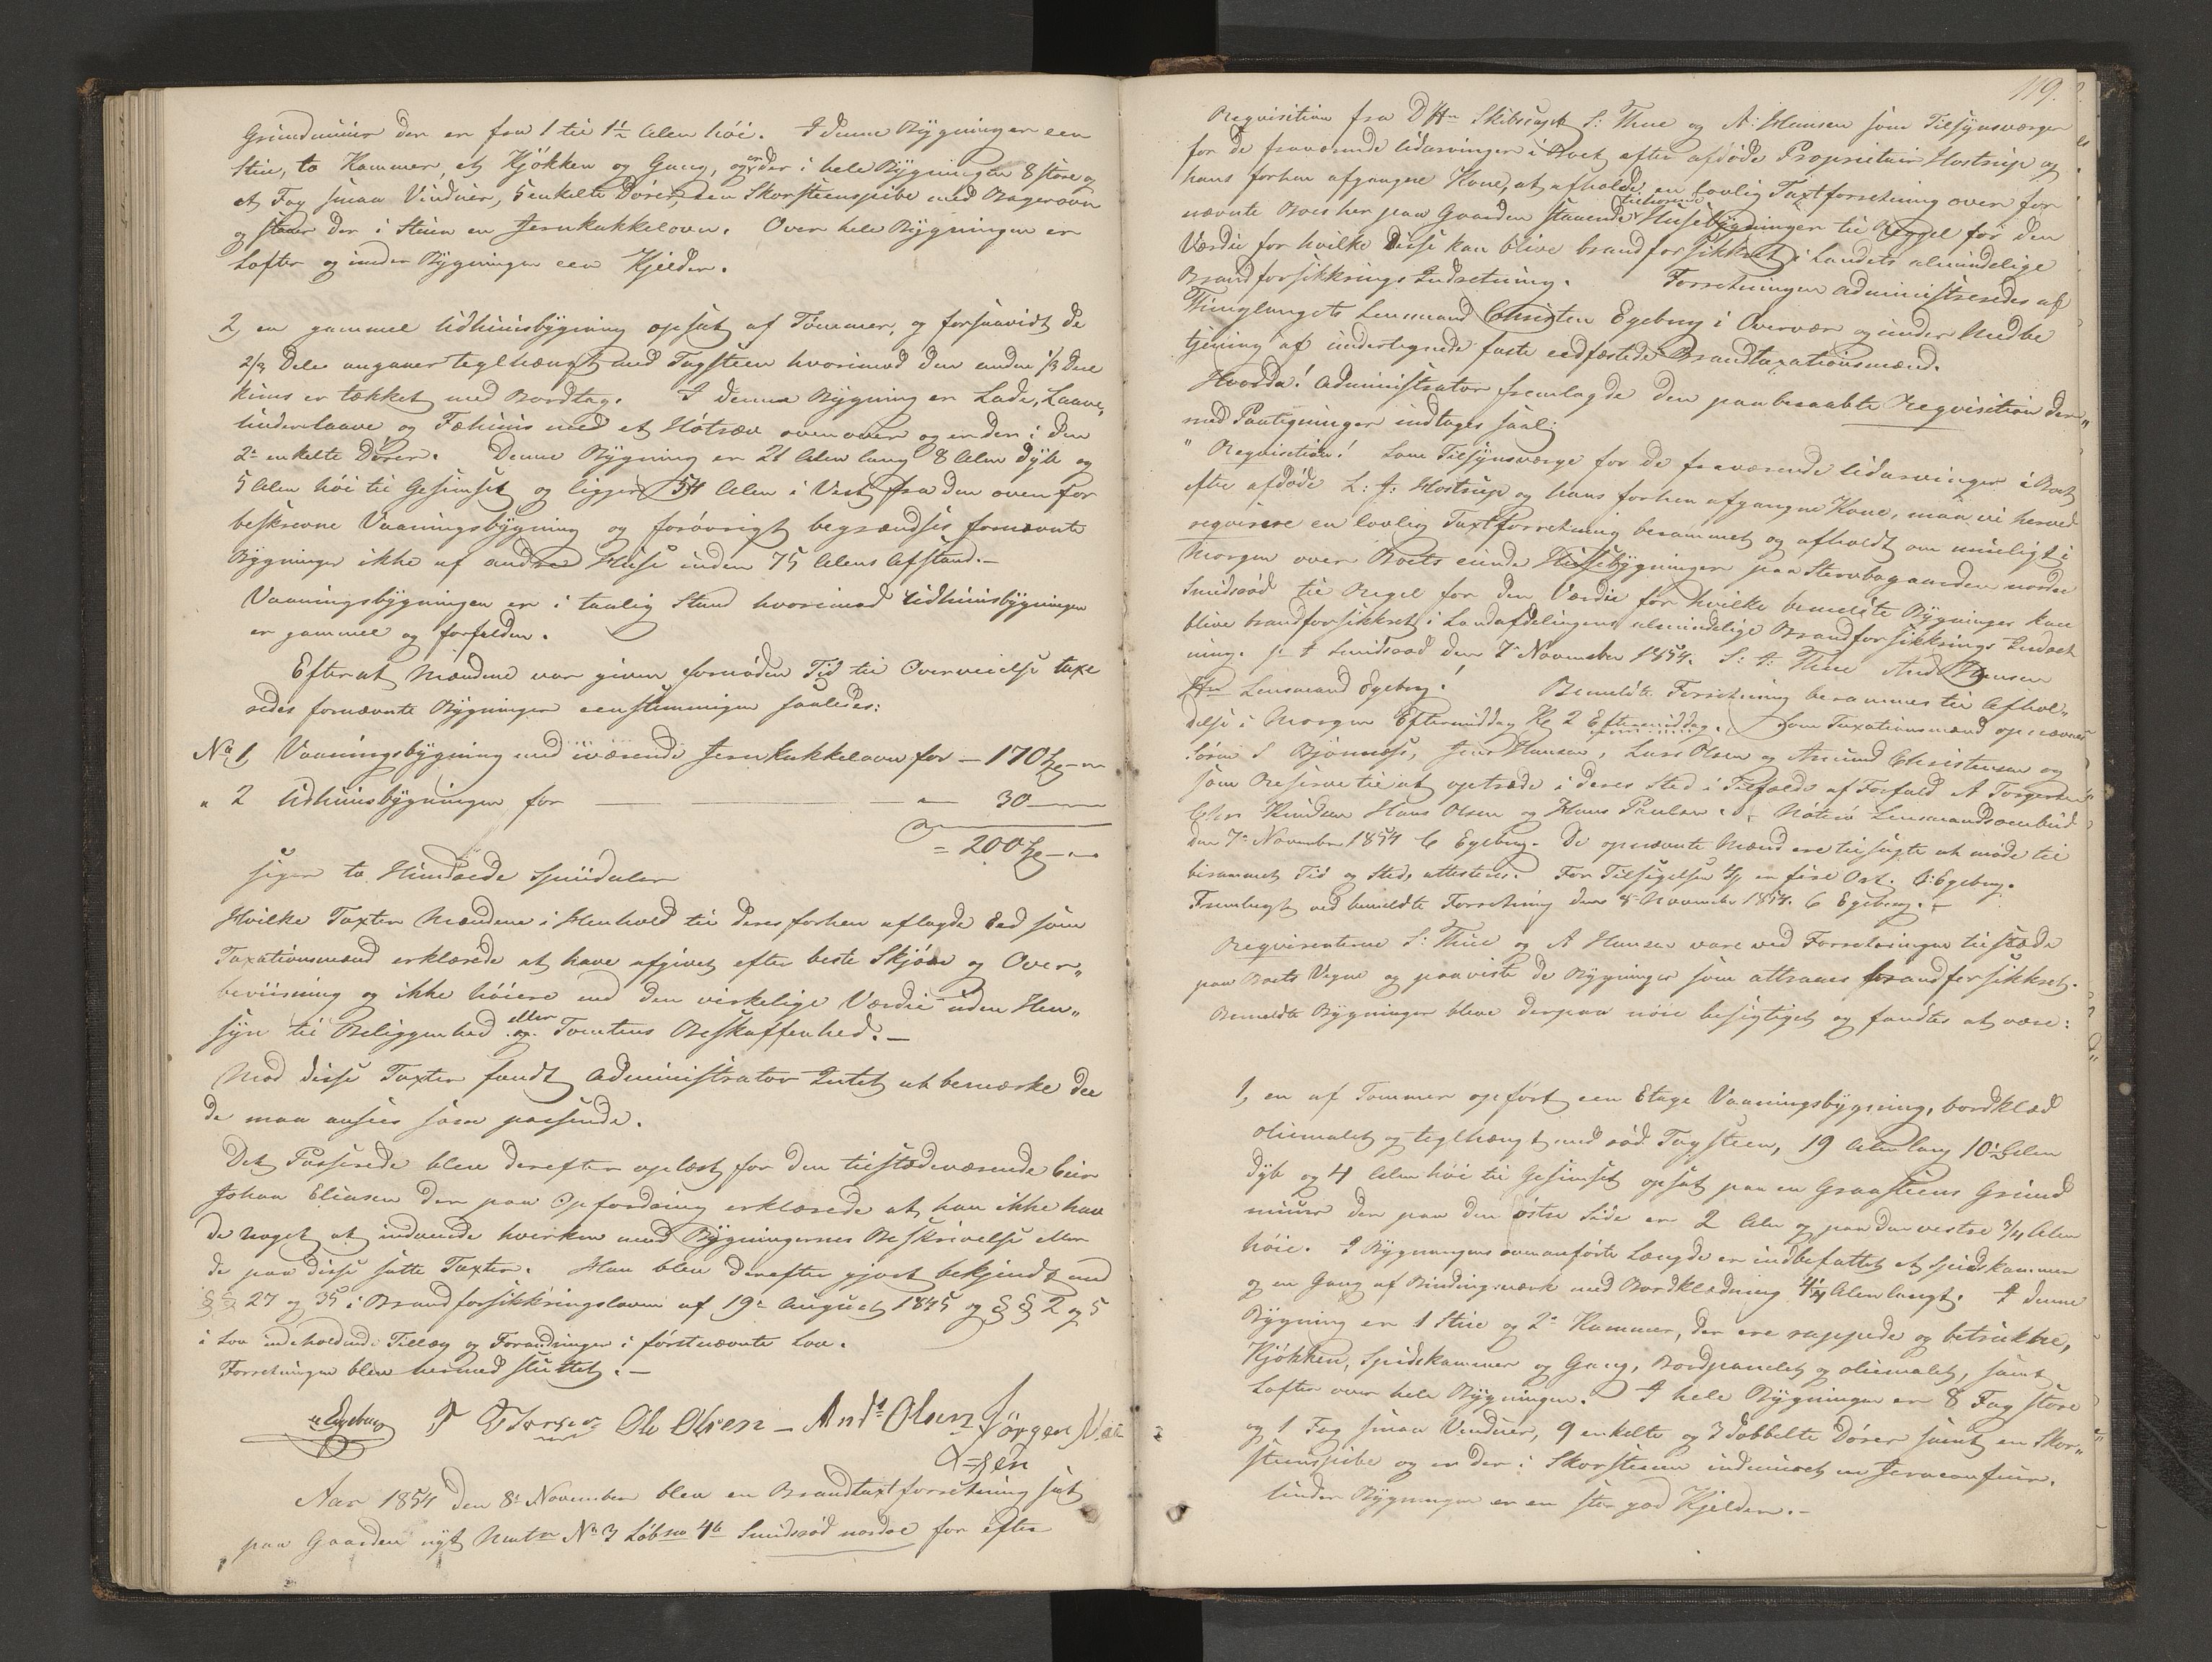 Grundmuur der er fra 1 til 1½ Alen höi. I denne Bygning er een
Stue, to Kammer, et Kjökken og Gang, og er der i hele Bygningen 8 store og
et Fag smaa Vinduer, 5 enkelte Dörer, een Skorsteenspibe med Bagerovn
og staar der i Stuen en Jernkakkelovn. Over hele Bygningen er
Lofter og under Bygningen een Kjelder.
2, en gammel Udhuusbygning opsat af Tömmer, og forsaavidt de
2/3 Dele angaaer teglhængt med Tagsteen hvorimod den anden 1/3 Deel
kuns er tækket med Bordtag. I denne Bygning er Lade, Laave,
Underlaave og Fæhuus med et Hötræv ovenover og er der i den
2de enkelte Dörer. Denne Bygning er 21 Alen lang 8 Alen dyb og
5 Alen höi til Gesimset og ligger 54 Alen i Vest fra den ovenfor
beskrevne Vaaningsbygning og forövrigt begrændses fornævnte
Bygninger ikke af andre Huse inden 75 Alens Afstand.-
Vaaningsbygningen er i taalig Stand hvorimod Udhuusbygningen
er gammel og forfalden.
Efterat Mændene var given fornöden Tid til Overveielse taxe
redes fornævnte Bygninger eenstemmigen saaledes:
No 1 Vaaningsbygning med iværende Jernkakkelovn for — 170
" 2 Udhuusbygningen for — " — 30 —
= 200
siger to Hundrede Speciedaler
Hvilke Taxter Mændene i Henhold til deres forhen aflagde Eed som
Taxationsmænd erklærede at have afgivet efter beste Skjön og Over„
beviisning og ikke höiere end den virkelige Værdie uden Hen„
syn til Beliggenhed eller og Tomtens Beskaffenhed.-
Mod disse Taxter fandt Administrator Intet at bemærke da
de maa ansees som passende.
Det Passerede blev derefter oplæst for den tilstædeværende Eier
Johan Eliasen der paa Opfordring erklærede at han ikke hav
de noget at indvende hverken mod Bygningernes Beskrivelse eller
de paa disse satte Taxter. Han blev derefter gjort bekjendt med
§ § 27 og 35 i Brandforsikkringsloven af 19de August 1845 og § § 2 og 5
i Lov indeholdende Tillæg og Forandringer i förstnævnte Lov.
Forretningen blev hermed sluttet.-
C Egeberg Ole Olsen - Ands Olsen Jörgen
Aar 1854 den 8de November blev en Brandtaxtforretning sat
paa Gaarden nyt Matr No 3 Löbno 4b Smidsröd nordre for efter
119.
Requisition fra DHr Skibscapt S: Thue og A: Hansen som Tilsynsværger
for de fraværende Udarvinger i Boet efter afdöde Proprietair Hostrup og
hans forhen afgangne Kone, at afholde en lovlig Taxtforretning over for
nævnte Boes her paa Gaarden staaende tilhörende Husebygninger til Regel for den
Værdie for hvilke disse kan blive brandforsikkret i Landets almindelige
Brandforsikkrings Indretning. Forretningen administreredes af
Thinglaugets Lensmand Christen Egeberg i Overvær og under Medbe
tjening af undertegnede faste eedfæstede Brandtaxationsmænd.
Hvorda! Administrator fremlagde den paaberaabte Requisition der„
med Paategninger indtages saal:
" Requisition! Som Tilsynsværge for de fraværende Udarvinger i Boet
efter afdöde L: J: Hostrup og hans forhen afgangne Kone, maa vi herved
reqvirere en lovlig Taxtforretning berammet og afholdt om muligt i
Morgen over Boets eiende Husebygninger paa Stervbogaarden nordre
Smidsröd til Regel for den Værdie for hvilke bemeldte Bygninger kan
blive brandforsikkret i Landafdelingens almindelige Brandforsikkrings Indret
ning. p t Smidsröd den 7de November 1854. S: A: Thue And Hansen
Hr Lensmand Egeberg! Bemeldte Forretning berammes til Afhol„
delse i Morgen Eftermiddag Kl 2 Eftermiddag. Som Taxationsmænd opnævnes
Sören S Björnness, Jens Hansen, Lars Olsen og Amund Christensen og
som Reserve til at optræde i deres Sted i Tilfælde af Forfald A Torgersen
Chr Knudsen Hans Olsen og Hans Paulsen. Nöterö Lensmandsombud
den 7de November 1854 C Egeberg. De opnævnte Mænd ere tilsagte at möde til
berammet Tid og Sted, attesteres. For Tilsigelsen er fire Ort. C: Egeberg.
Fremlagt ved bemeldte Forretning den 8de November 1854. C Egeberg.-
Requirenterne S: Thue og A Hansen vare ved Forretningen tilstæde
paa Boets Vegne og paaviste de Bygninger som attraaes brandforsikkret.
Bemeldte Bygninger bleve derpaa nöie besigtiget og fandtes at være:
1, en af Tömmer opfört een Etage Vaaningsbygning, bordklæd
oliemalet og teglhængt med röd Tagsteen, 19 Alen lang 10½ Alen
dyb og 4 Alen höi til Gesimset opsat paa en Graasteens Grund
muur der paa den östre Side er 2 Alen og paa den vestre 3/4 Alen
höie. I Bygningens ovenanförte Længde er indbefattet et Spiiskammer
og en Gang af Bindingsværk med Bordklædning 4¼ Alen langt. I denne
Bygning er 1 Stue og 2de Kammer, der ere rappede og betrukne,
Kjökken, Spiskammer og Gang, Bordpanelet og oliemalet, samt
Lofter over hele Bygningen. I hele Bygningen er 8 Fag store
og 1 Fag smaa Vinduer, 9 enkelte og 3 dobbelte Dörer samt en Skor„
steenspibe og er der i Skorstenen indmuret en Jerncomfuur.
Under Bygningen er en stor god Kjelder.-